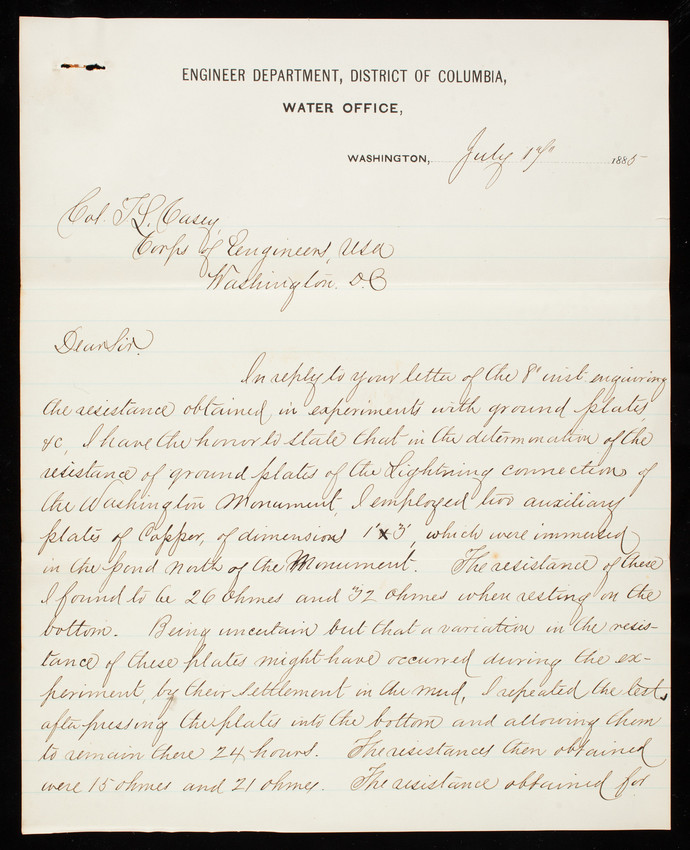 ENGINEER DEPARTMENT, DISTRICT OF COLUMBIA,
WATER OFFICE,
WASHINGTON, July 1885
Col. T. L. Casey,
Corps of Engineers, USA
Washington. D.C
Dear Sir.
In reply to your letter of the 8" inst. enquiring
the resistance obtained in experiments with ground plates
&c, I have the honor to state that in the determination of the
resistance of ground plates of the Lightning connections of
the Washington Monument, I employed two auxiliary
plates of Copper, of dimensions 1' x 3', which were immersed
in the pond north of the Monument. The resistance of these
I found to be 26 ohmes and 32 ohmes when resting on the
bottom. Being uncertain but that a variation in the resis-
tance of these plates might have occurred during the ex-
periment, by their settlement in the mud, I repeated the test,
after pressing the plates into the bottom and allowing them
to remain there 24 hours. The resistances then obtained
were 15 ohmes and 21 ohmes. The resistance obtained for